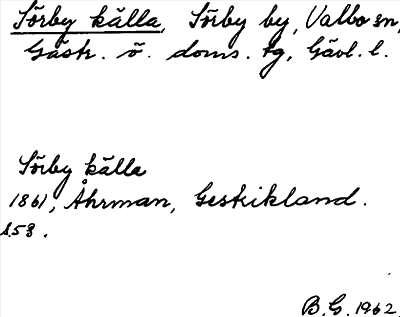 Sörby källa, Sörby by, Valbo sn,
Gästr. ö. doms. tg, Gävl. l.
Sörby källa
1861, Åhrman, Gestrikland.
s. 53.
B. G. 1962.